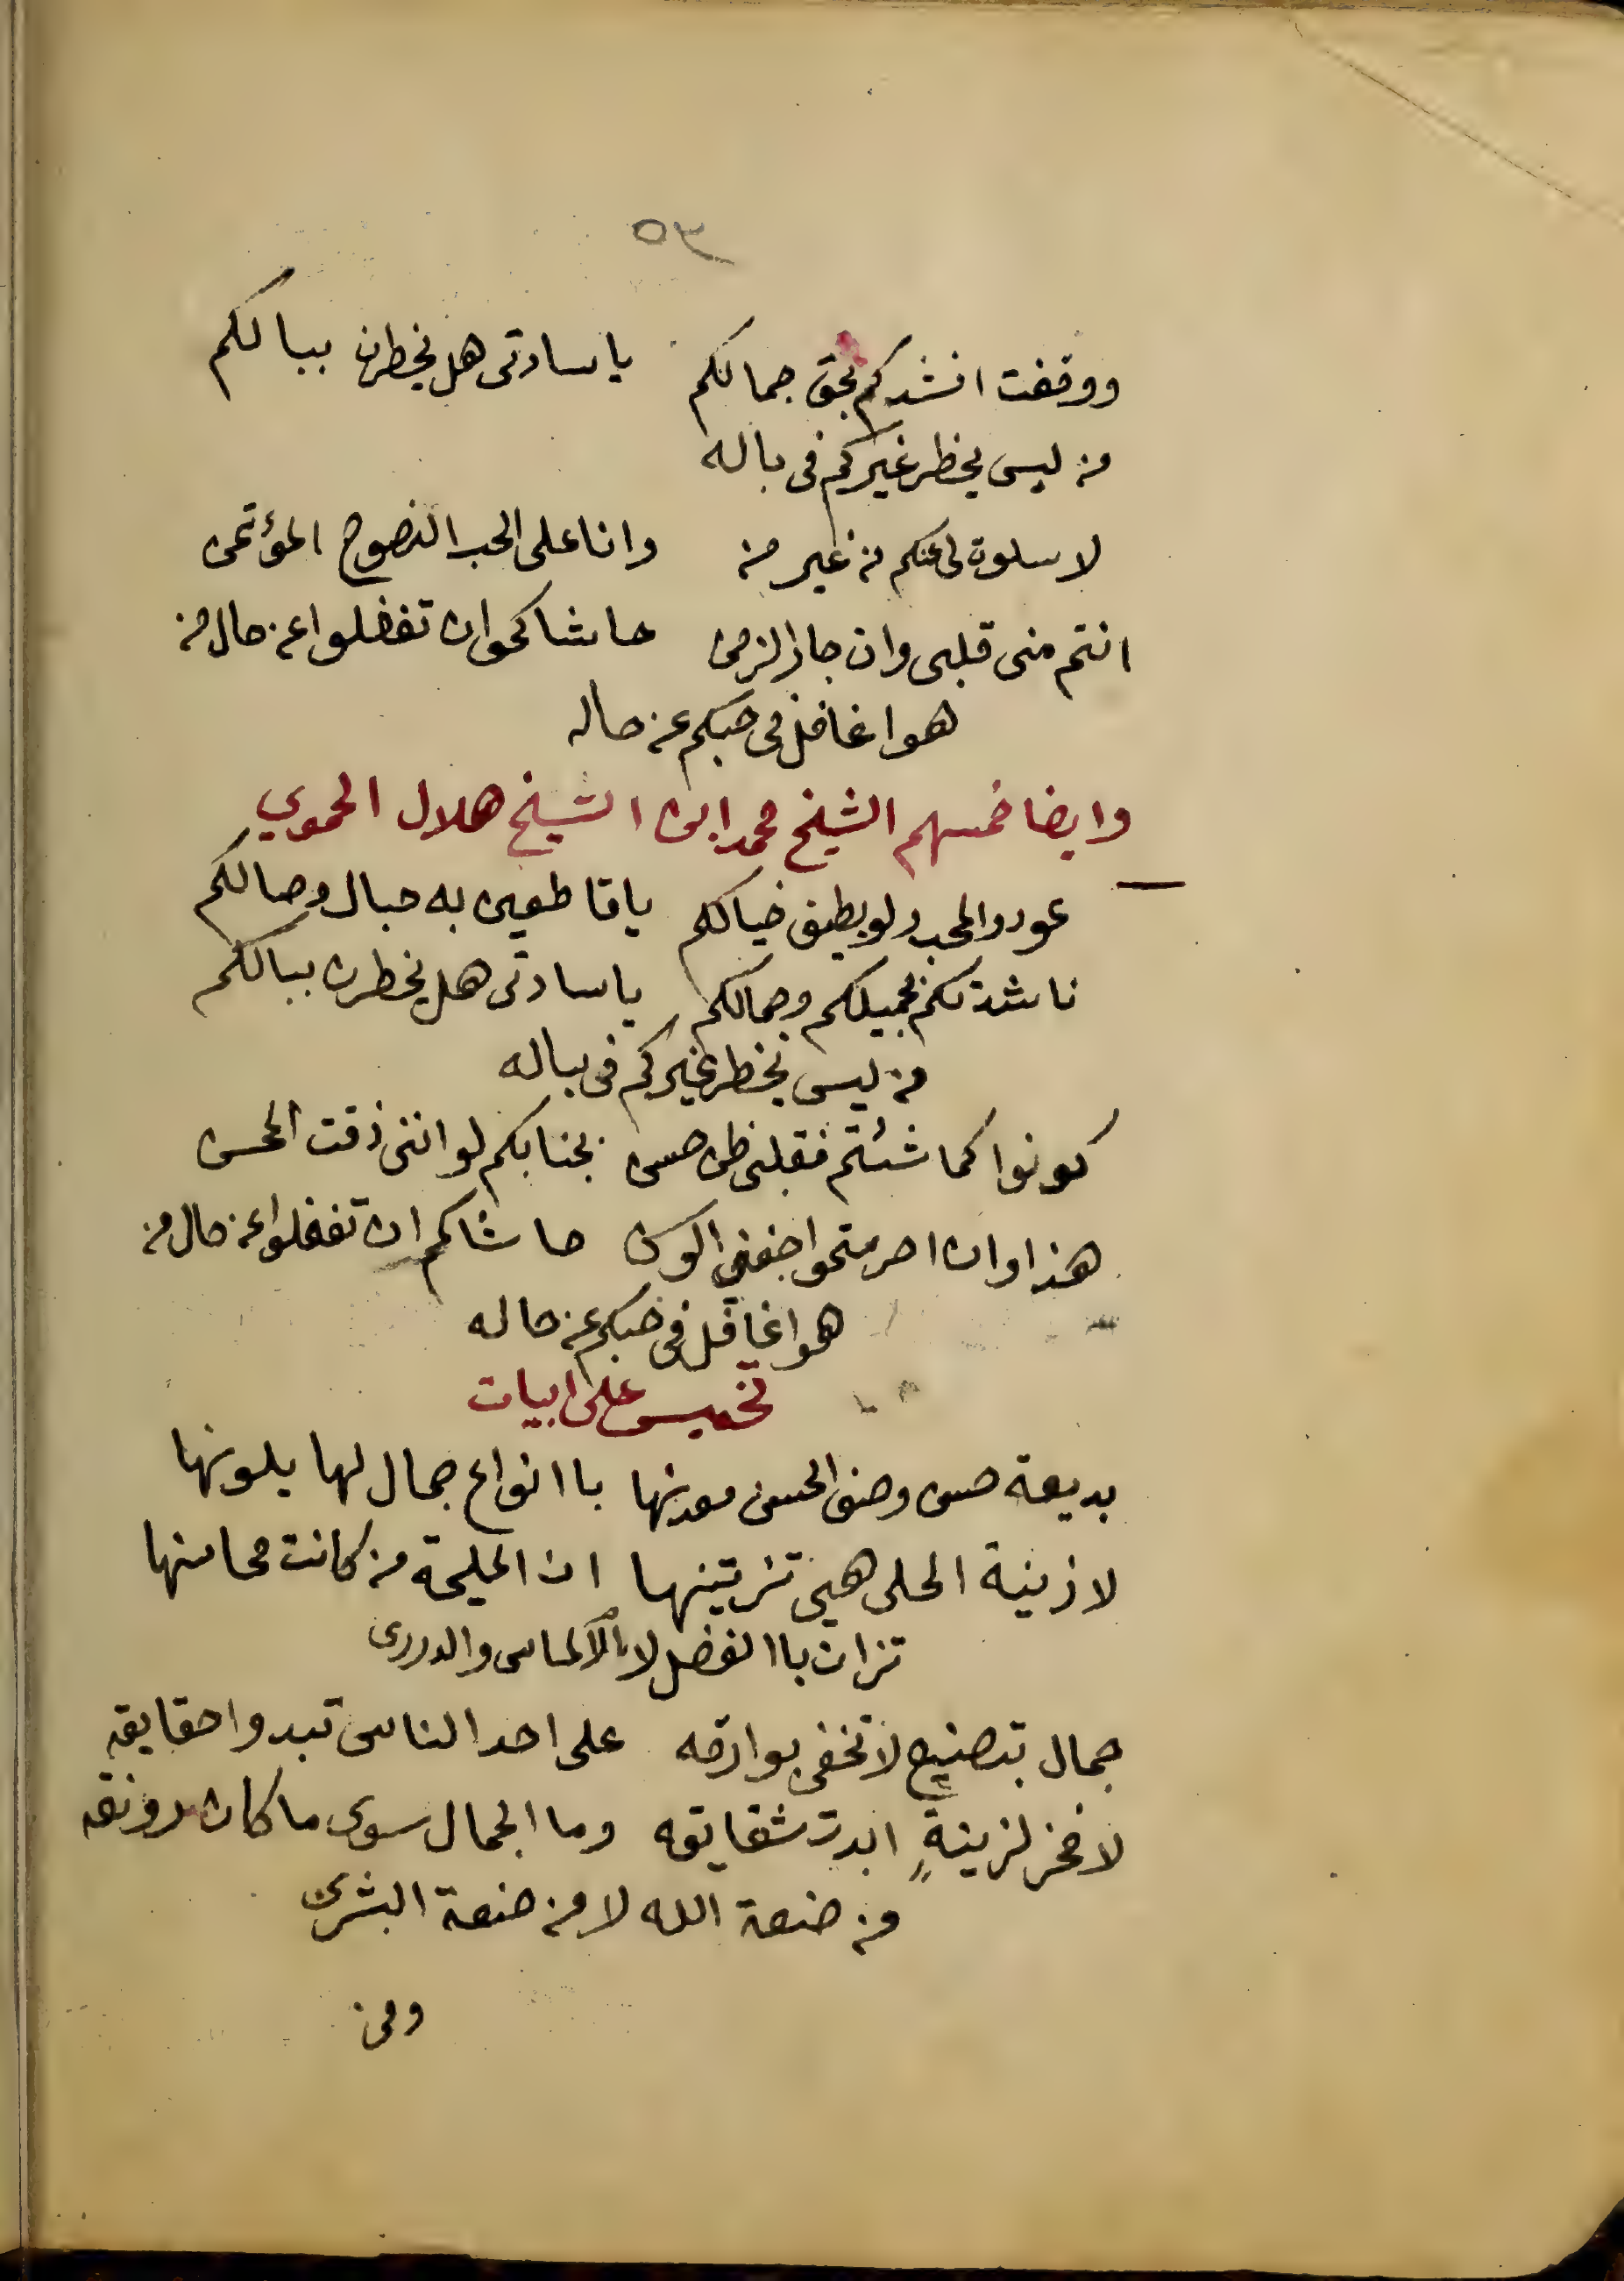 ٥٣
ووقفت انشدكم بحق جمالكم ياسادتى هل يخطرن ببالكم
من ليس يخطر غيركم فى باله
لا سلوة لى عنكم من غير من وانا على الحب النصوح المؤتمن
انتم منى قلبى وان جار الزمن حاشا كموان تغفلوا عن حال من
هوا غافل فى حبكم عن حاله
وايضا خمسهم الشيخ محمد ابن الشيخ هلال الحموي
عودو المحب ولو بطيف خيالكم ياقاطعين به حبال وصالكم
ناشدتكم بجميلكم وجمالكم ياسادتى هل يخطرن ببالكم
من ليس يخطر غيركم فى بباله
كونوا كما شئتم فقلبى ظن حسن بجنابكم لو اننى ذقت المحسن
هذا وان احرمتموا جفنى الوسن حاشاكم ان تغفلوا عن حال من
هوا غافل فى حبكم عن حاله
تخميس على ابيات
بديعة حسن وصنف الحسن معدنها باانواع جمال لها يلونها
لازينة الحلى هيى تزيتينها ان المليحة من كانت محاسنها
تزان باالفضل لا باالالماس والدررى
جمال بتصنيع لا تخفى بوارقه على احد الناس تبدوا حقايقه
لا فخر لزينةٍ ابدت شقايقه وما الجمال سوى ما كان رونقه
من صنعة الله لا من صنعة البشرى
ومن